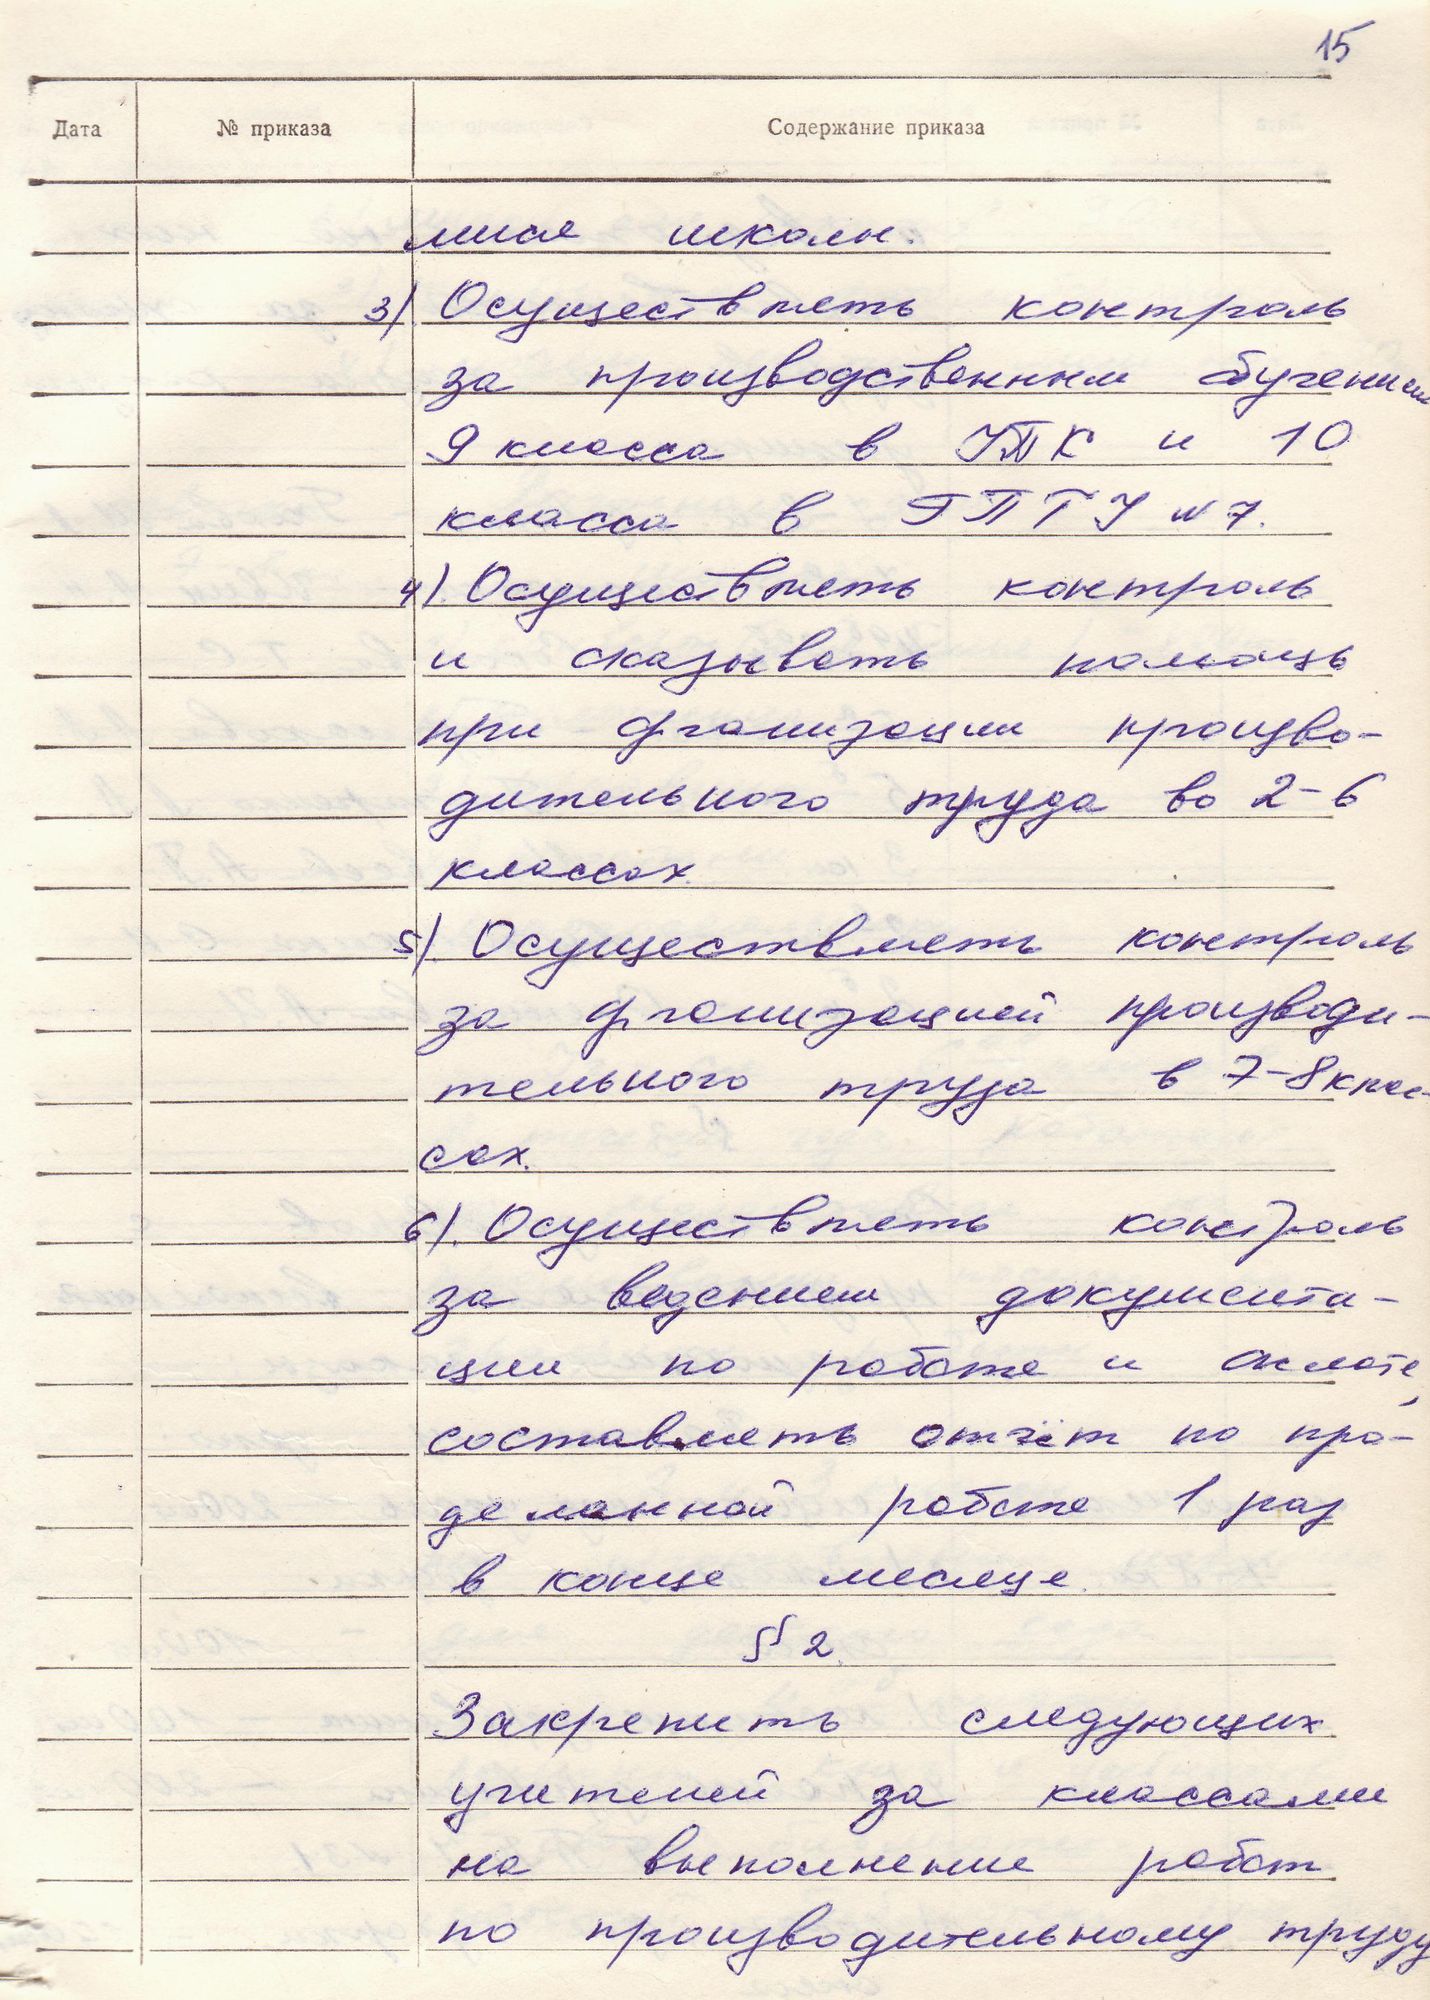 15
Дата № приказа Содержание приказа
школы.
3) Осуществлять контроль
за производственным обучением
9 класса в УПК и 10
класса в ГПТУ №7.
4). Осуществлять контроль
и оказывать помощь
при организации произво-
дительного труда во 2-6
классах.
5). Осуществлять контроль
за организацией производи-
тельного труда в 7-8 клас-
сах.
6). Осуществлять контроль
за ведением документа-
ции по работе и оплате,
составлять отчёт по про-
деланной работе 1 раз
в конце месяце.
§ 2.
Закрепить следующих
учителей за классами
на выполнение работ
по производительному труду